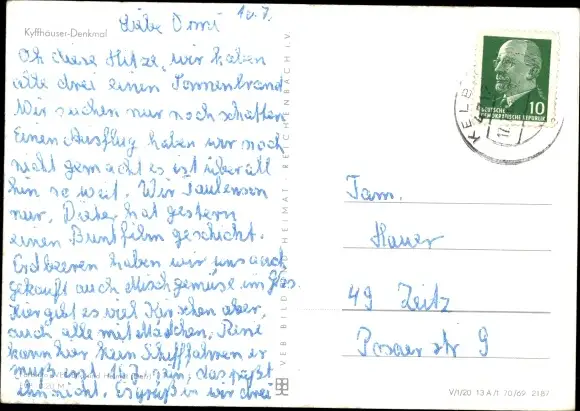 10.7.
Liebe Omi
Kyffhäuser-Denkmal
Oh diese Hitze, wir haben
alle drei einen Sonnenbrand
Wir suchen nur noch schatten
Einen Ausflug haben wir noch
nicht gemacht es ist überall
hin so weit. Wir faulensen
nur. Dieter hat gestern
einen Buntfilm geschickt.
Erdbeeren haben wir uns auch
gekauft auch Mischgemüse im Glas.
hier gibt es viel Kirschen aber,
auch alle mit Mädchen, René
kann hier kein Schiff fahren er
muß erst 16 J. sein, das paßt
ihm nicht. Es grüßen wir drei
VEB BILD HEIMAT REICHENBACH I. V.
10
DEUTSCHE
DEMOKRATISCHE REPUBLIK
KELB
17.
Fam.
Hauer
49 Zeitz
Posaer str 9
V/1/20 13 A/1 70/69 2187